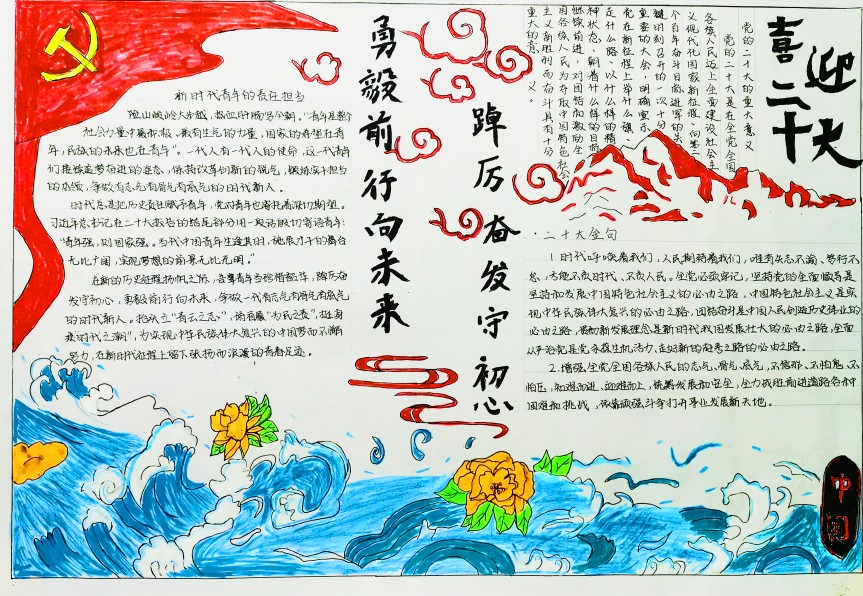 喜迎
二十大
党的二十大的重大意义
党的二十大是在全党全国
各族人民迈上全面建设社会主
义现代化国家新征程、向第二
个百年奋斗目标进军的关
键时刻召开的一次十分
重要的大会,明确宣示
党在新征程上举什么旗、
走什么路、以什么样的精
神状态、朝着什么样的目标
继续前进,对团结和激励全
国各族人民为夺取中国特色社会
主义新胜利而奋斗具有十分
重大的意义。
勇毅前行向未来
踔厉奋发守初心
新时代青年的责任担当
青年是整个
社会力量中
最有生气的力量,国家的希望在青
年,民族的未来也在青年"。一代人有一代人的使命,这一代青年
的本领,争做有志气有骨气有底气的时代新人。
习近平总书记在二十大报告的结尾部分用一段话殷切寄语青年:
"青年强,则国家强。当代中国青年生逢其时,施展才干的舞台
无比广阔,实现梦想的前景无比光明。"
在新的历史征程扬帆之际,吾辈青年当
发守初心,勇毅前行向未来,争做一代有志气有骨气有底气
的时代新人。
为实现中华民族伟大复兴的中国梦而不懈
努力,在新时代征程上留下
的青春足迹。
·二十大金句
1.时代呼唤着我们,人民期待着我们,唯有矢志不渝、笃行不
怠,方能不负时代、不负人民。全党必须牢记,坚持党的全面领导是
坚持和发展中国特色社会主义的必由之路,中国特色社会主义是实
现中华民族伟大复兴的必由之路,团结奋斗是中国人民创造历史伟业的
必由之路,贯彻新发展理念是新时代我国发展壮大的必由之路,全面
从严治党是党永葆生机活力、走好新的赶考之路的必由之路。
2.增强全党全国各族人民的志气、骨气、底气,不信邪、不怕鬼、不
怕压,知难而进、迎难而上,统筹发展和安全,全力战胜前进道路各种
困难和挑战,依靠顽强斗争打开事业发展新天地。
中国